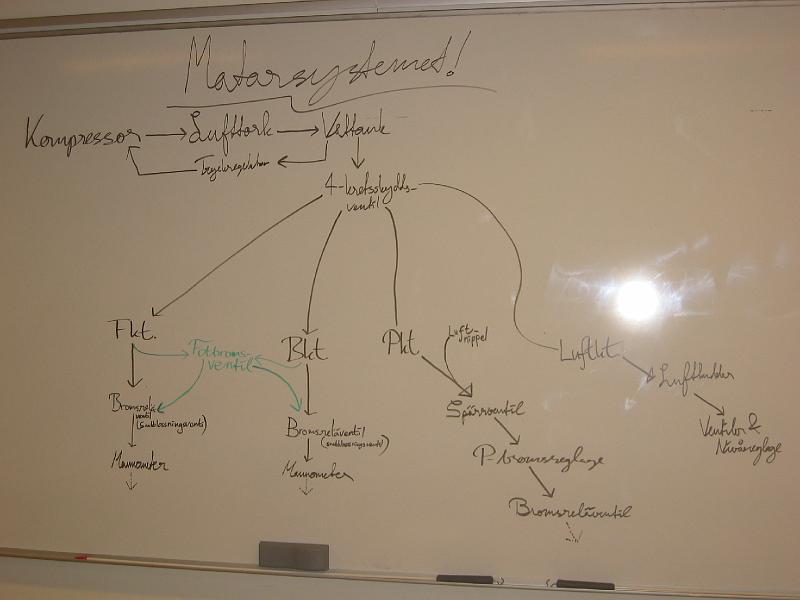 Matarsystemet!
Kompressor → Lufttork → Våttank
Tryckregulator
4-kretsskydds-
ventil
Fkt.
Fotbroms-
ventil
Bkt
Pkt
Luft-
nippel
Luftkt
Luftbudder
Bromsrelä-
ventil
(snabblossningsventil)
Bromsreläventil
(snabblossningsventil)
Spärrventil
Ventiler &
Nivåreglage
Manometer
Manometer
P-bromsreglage
Bromsreläventil